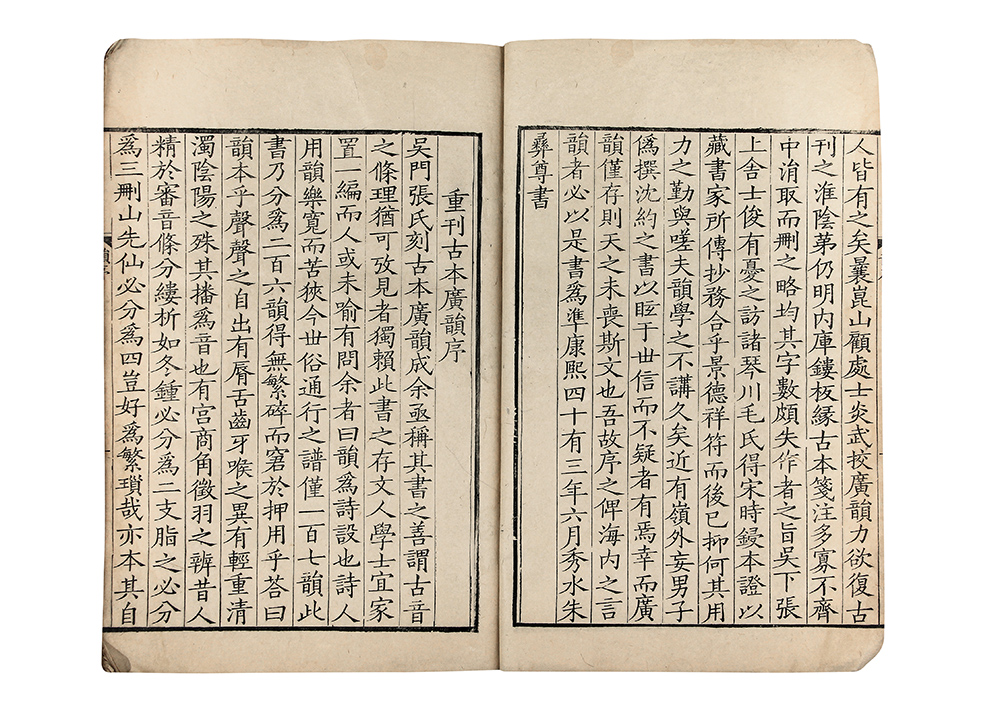 人皆有之矣曩崑山顧處士炎武挍廣韻力欲復古
刊之淮陰第仍明內庫鏤板緣古本箋注多寡不齊
中涓取而刪之略均其字數頗失作者之旨吳下張
上舍士俊有憂之訪諸琴川毛氏得宋時鋟本證以
藏書家所傳抄務合乎景德祥符而後已抑何其用
力之勤與嗟夫韻學之不講久矣近有嶺外妄男子
僞撰沈約之書以眩于世信而不疑者有焉幸而廣
韻僅存則天之未喪斯文也吾故序之俾海內之言
韻者必以是書爲準康熙四十有三年六月秀水朱
彝尊書
重刊古本廣韻序
吳門張氏刻古本廣韻成余亟稱其書之善謂古音
之條理猶可攷見者獨賴此書之存文人學士宜家
置一編而人或未喻有問余者曰韻爲詩設也詩人
用韻樂寬而苦狹今世俗通行之譜僅一百七韻此
書乃分爲二百六韻得無繁碎而窘於押用乎荅曰
韻本乎聲聲之自出有脣舌齒牙喉之異有輕重清
濁陰陽之殊其播爲音也有宮商角徵羽之辨昔人
精於審音條分縷析如冬鍾必分爲二支脂之必分
爲三刪山先仙必分爲四豈好爲繁瑣哉亦本其自